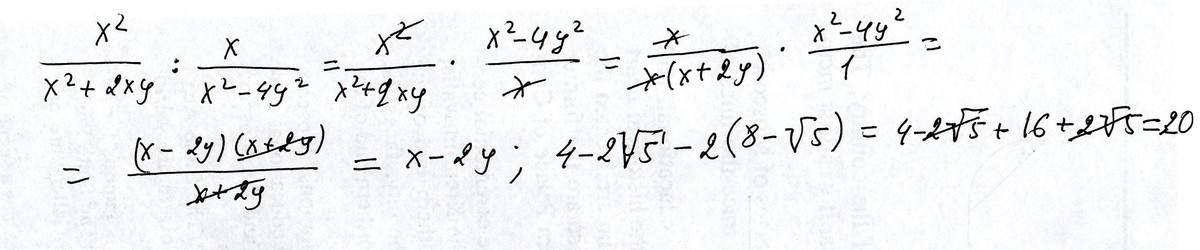 x²/(x²+2xy) : x/(x²-4y²) = x²/(x²+2xy) · (x²-4y²)/x = x/(x(x+2y)) · (x²-4y²)/1 =
= (x-2y)(x+2y)/(x+2y) = x-2y; 4-2√5-2(8-√5) = 4-2√5+16+2√5=20